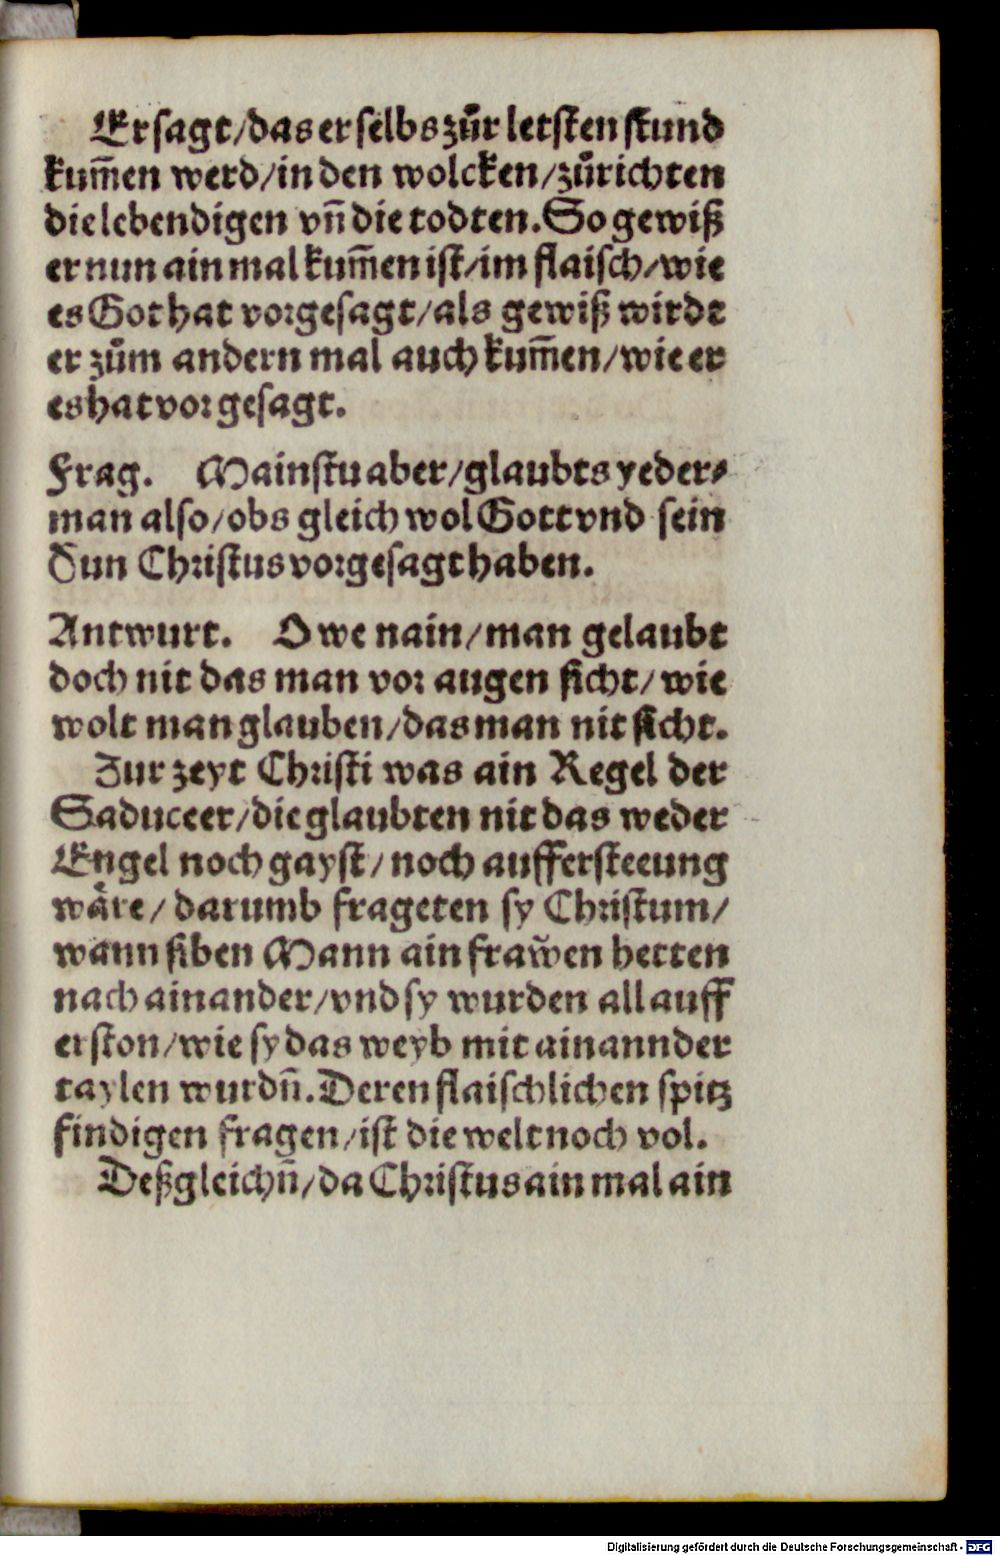 Er sagt/das er selbs zůr letsten stund
kum̃en werd/in den wolcken/zůrichten
die lebendigen vñ die todten. So gewiß
er nun ain mal kum̃en ist/im flaisch/wie
es Got hat vorgesagt/als gewiß wirdt
er zům andern mal auch kum̃en/wie er
es hat vorgesagt.
Frag. Mainstu aber/glaubts yeder⸗
man also/obs gleich wol Gott vnd sein
Sun Christus vorgesagt haben.
Antwurt. O we nain/man gelaubt
doch nit das man vor augen sicht/wie
wolt man glauben/das man nit sicht.
Zur zeyt Christi was ain Regel der
Saduceer/die glaubten nit das weder
Engel noch gayst/noch auffersteeung
wåre/darumb frageten sy Christum/
wann siben Mann ain fraw̃en hetten
nach ainander/vnd sy wurden all auff
erston/wie sy das weyb mit ainannder
taylen wurdñ. Deren flaischlichen spitz
findigen fragen/ist die welt noch vol.
Deßgleichñ/da Christus ain mal ain
Digitalisierung gefördert durch die Deutsche Forschungsgemeinschaft - DFG